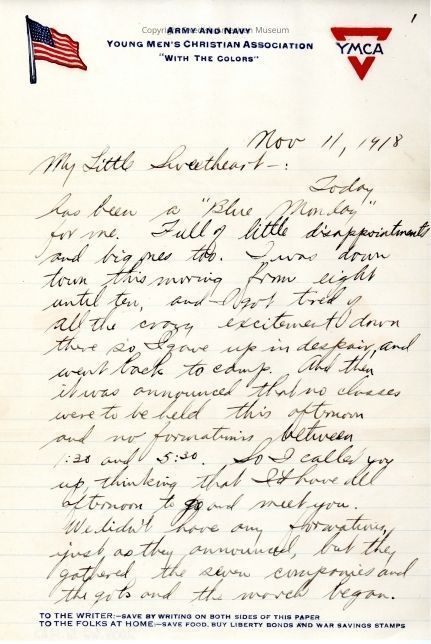 1
ARMY AND NAVY
YOUNG MEN'S CHRISTIAN ASSOCIATION
"WITH THE COLORS"
YMCA
Nov 11, 1918
My Little Sweetheart-:
Today
has been a "Blue Monday"
for me. Full of little disappointments
and big ones too. I was down
town this morning from eight
until ten, and I got tired of
all the crazy excitement down
there so I gave up in despair, and
went back to camp. And then
it was announced that no classes
were to be held this afternoon
and no formations between
1:30 and 5:30. So I called you
up, thinking that I'd have all
afternoon to go and meet you.
We didn't have any formations,
just as they announced, but they
gathered the seven companies and
the gobs and the march began.
TO THE WRITER:—SAVE BY WRITING ON BOTH SIDES OF THIS PAPER
TO THE FOLKS AT HOME:—SAVE FOOD. BUY LIBERTY BONDS AND WAR SAVINGS STAMPS